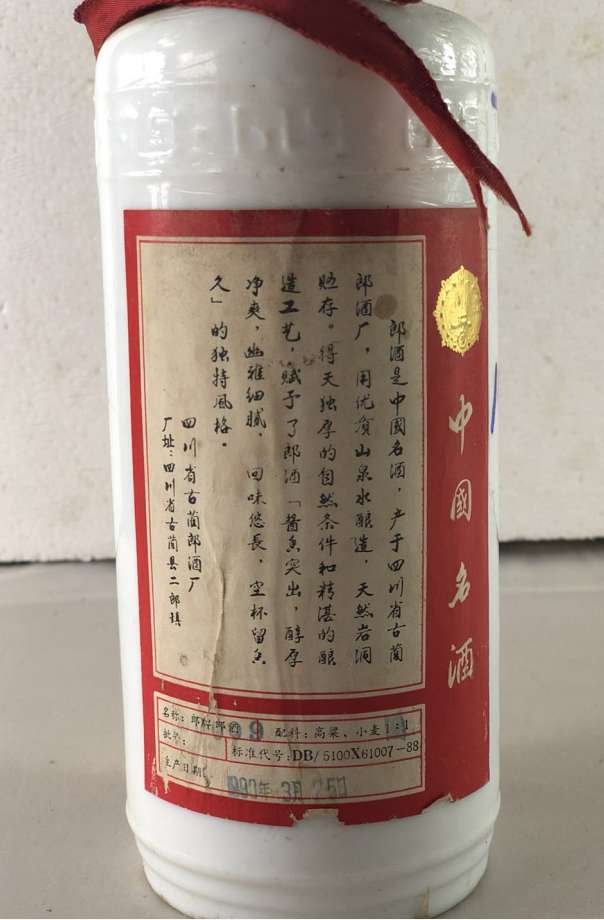 郎酒是中國名酒，产于四川省古蔺
郎酒厂，用优质山泉水酿造，天然岩洞
贮存。得天独厚的自然条件和精湛的酿
造工艺，赋予了郎酒「酱香突出，醇厚
净爽，幽雅细腻，回味悠長，空杯留香
久」的独特風格。
四川省古蔺郎酒厂
厂址：四川省古蔺县二郎镇
中國名酒
名称：郎牌郎酒 配料：高粱、小麦1:1
批号：
标准代号：DB/5100X61007-88
生产日期 1990年 3月 25日